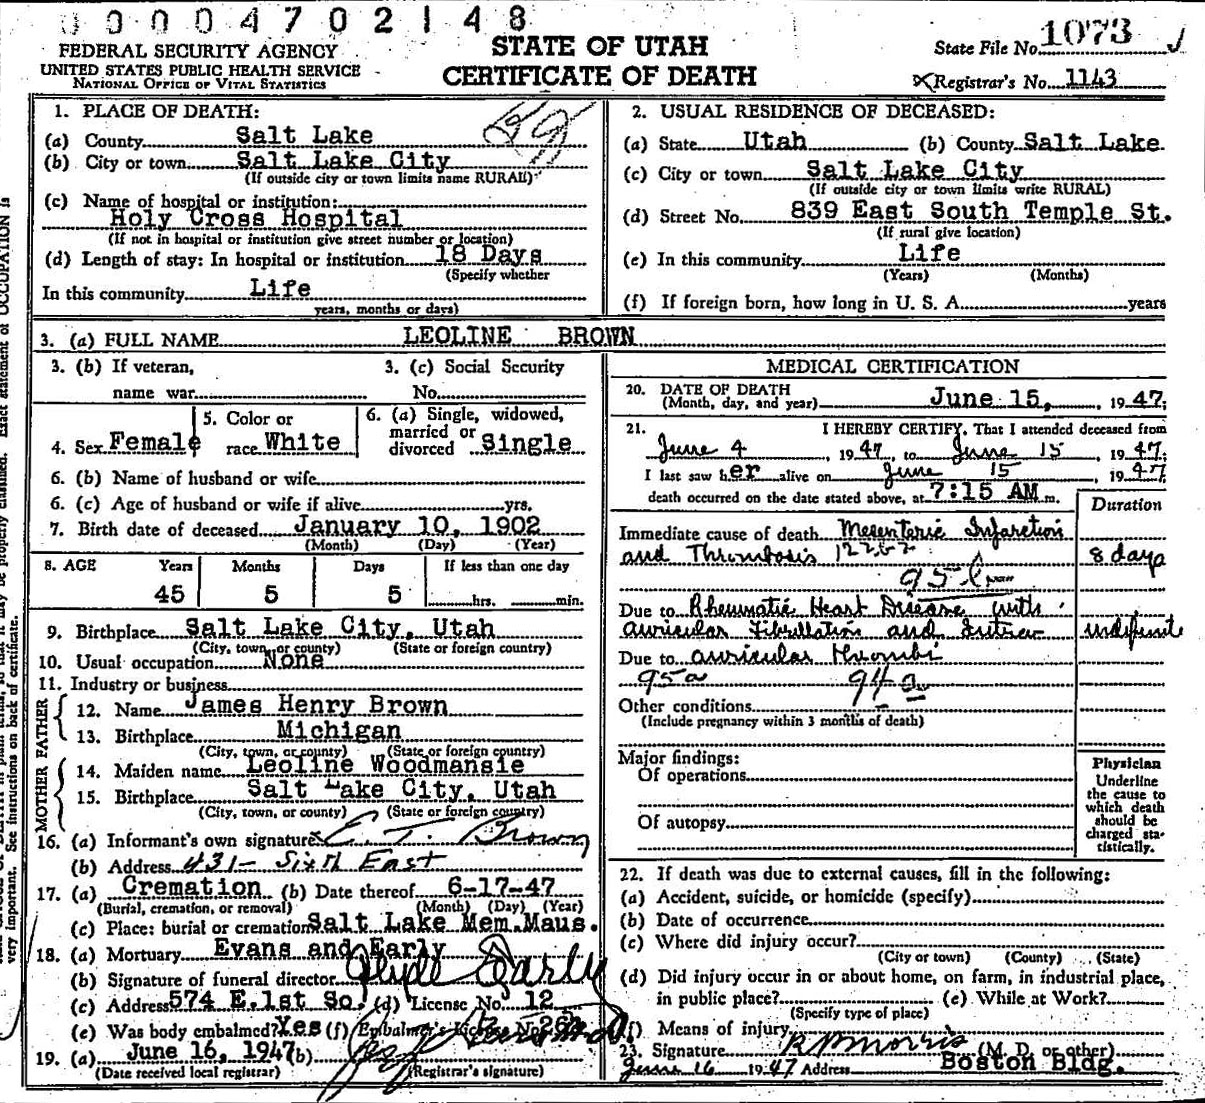 0 0 0 0 4 7 0 2 1 4 8
FEDERAL SECURITY AGENCY
UNITED STATES PUBLIC HEALTH SERVICE
NATIONAL OFFICE OF VITAL STATISTICS
STATE OF UTAH
CERTIFICATE OF DEATH
State File No. 1073
Registrar's No. 1143
1. PLACE OF DEATH:
(a) County Salt Lake
(b) City or town Salt Lake City
(If outside city or town limits name RURAL)
(c) Name of hospital or institution:
Holy Cross Hospital
(If not in hospital or institution give street number or location)
(d) Length of stay: In hospital or institution 18 Days
(Specify whether
In this community Life
years, months or days)
2. USUAL RESIDENCE OF DECEASED:
(a) State Utah (b) County Salt Lake
(c) City or town Salt Lake City
(If outside city or town limits write RURAL)
(d) Street No. 839 East South Temple St.
(If rural give location)
(e) In this community Life
(Years) (Months)
(f) If foreign born, how long in U. S. A. years
3. (a) FULL NAME LEOLINE BROWN
3. (b) If veteran,
name war
3. (c) Social Security
No.
4. Sex Female
5. Color or
race White
6. (a) Single, widowed,
married or
divorced Single
6. (b) Name of husband or wife
6. (c) Age of husband or wife if alive yrs.
7. Birth date of deceased January 10, 1902
(Month) (Day) (Year)
8. AGE Years Months Days If less than one day
45 5 5 hrs. min.
9. Birthplace Salt Lake City, Utah
(City, town, or county) (State or foreign country)
10. Usual occupation None
11. Industry or business
FATHER
12. Name James Henry Brown
13. Birthplace Michigan
(City, town, or county) (State or foreign country)
MOTHER
14. Maiden name Leoline Woodmansie
15. Birthplace Salt Lake City, Utah
(City, town, or county) (State or foreign country)
16. (a) Informant's own signature E. T. Brown
(b) Address 431- Sixth East
17. (a) Cremation (b) Date thereof 6-17-47
(Burial, cremation, or removal) (Month) (Day) (Year)
(c) Place: burial or cremation Salt Lake Mem.Maus.
18. (a) Mortuary Evans and Early
(b) Signature of funeral director Clyde Early
(c) Address 574 E.1st So. (d) License No. 12
(e) Was body embalmed? Yes (f) Embalmer's License No.
19. (a) June 16, 1947 (b)
(Date received local registrar) (Registrar's signature)
MEDICAL CERTIFICATION
20. DATE OF DEATH
(Month, day, and year) June 15, 1947;
21. I HEREBY CERTIFY, That I attended deceased from
June 4, 1947, to June 15, 1947;
I last saw her alive on June 15, 1947
death occurred on the date stated above, at 7:15 AM m.
Duration
Immediate cause of death Mesenteric Infarction
and Thrombosis 8 days
Due to Rheumatic Heart Disease with
auricular fibrillation and Intra- indefinite
Due to auricular thrombi
95a 94a
Other conditions
(Include pregnancy within 3 months of death)
Major findings:
Of operations
Of autopsy
Physician
Underline
the cause to
which death
should be
charged sta-
tistically.
22. If death was due to external causes, fill in the following:
(a) Accident, suicide, or homicide (specify)
(b) Date of occurrence
(c) Where did injury occur?
(City or town) (County) (State)
(d) Did injury occur in or about home, on farm, in industrial place,
in public place? (e) While at Work?
(Specify type of place)
(f) Means of injury
23. Signature R P Morris (M. D. or other)
June 16 1947 Address Boston Bldg.